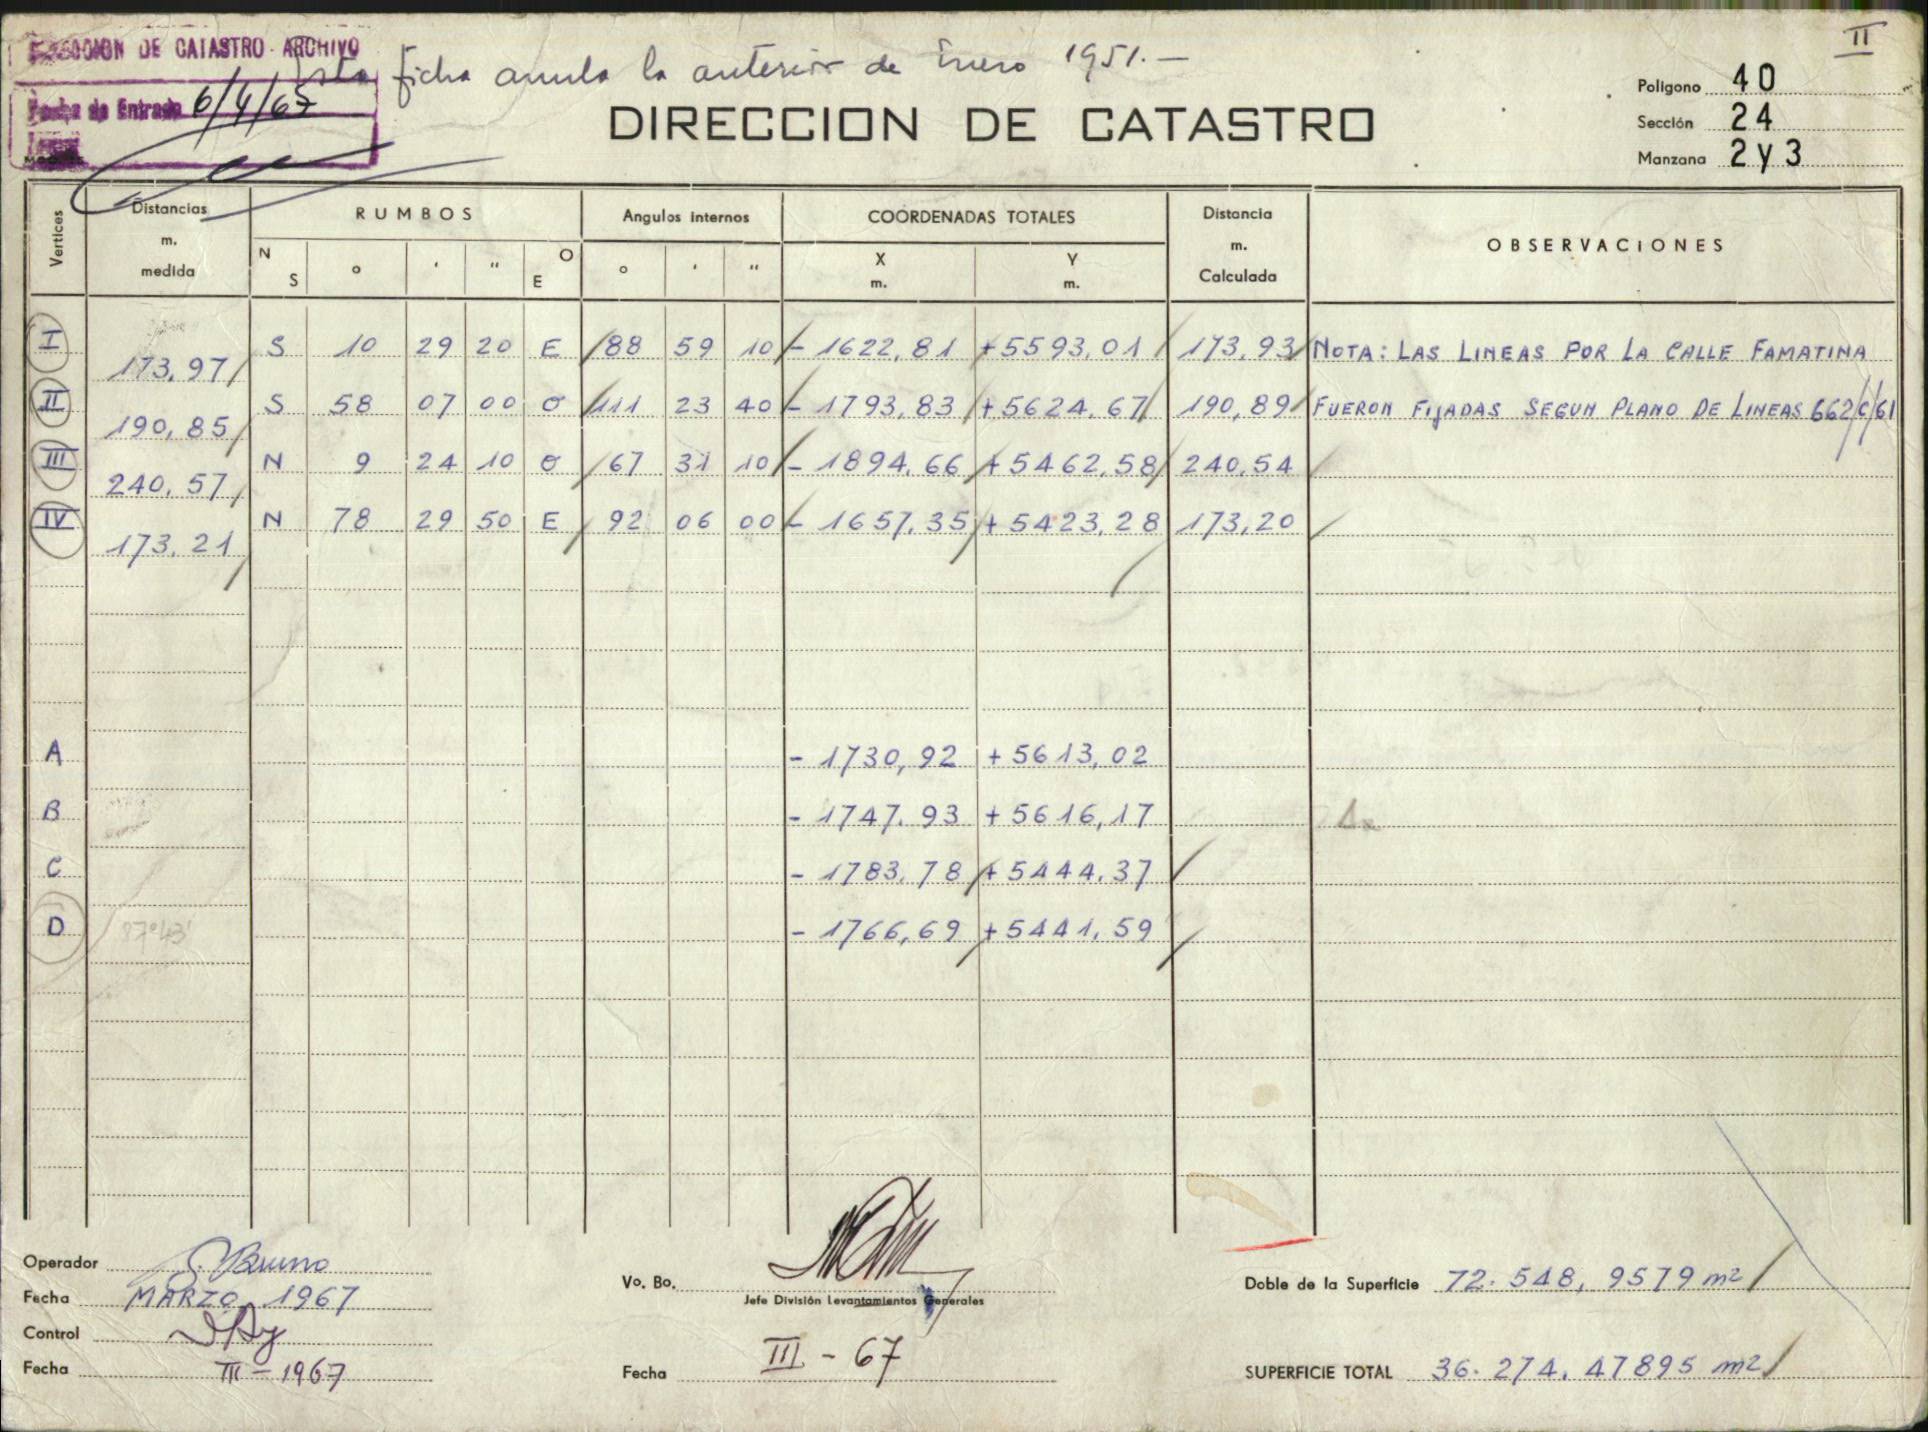 DIRECCION DE CATASTRO - ARCHIVO
Esta ficha anula la anterior de Enero 1951.-
II
Fecha de Entrada 6/4/67
DIRECCION DE CATASTRO
Poligono 40
Sección 24
Manzana 2 y 3
Vertices
Distancias m. medida
RUMBOS
N S ° ' " O E
Angulos internos
° ' "
COORDENADAS TOTALES
X m. Y m.
Distancia m. Calculada
OBSERVACIONES
I 173,97 S 10 29 20 E 88 59 10 - 1622,81 + 5593,01 173,93 NOTA: LAS LINEAS POR LA CALLE FAMATINA
II 190,85 S 58 07 00 O 111 23 40 - 1793,83 + 5624,67 190,89 FUERON FIJADAS SEGUN PLANO DE LINEAS 662/C/61
III 240,57 N 9 24 10 O 67 31 10 - 1894,66 + 5462,58 240,54
IV 173,21 N 78 29 50 E 92 06 00 - 1657,35 + 5423,28 173,20
A - 1730,92 + 5613,02
B - 1747,93 + 5616,17
C - 1783,78 + 5444,37
D 87°43' - 1766,69 + 5441,59
Operador G. Bruno
Fecha MARZO 1967
Control
Fecha III - 1967
Vo. Bo.
Jefe División Levantamientos Generales
Fecha III - 67
Doble de la Superficie 72.548,9579 m2
SUPERFICIE TOTAL 36.274,47895 m2